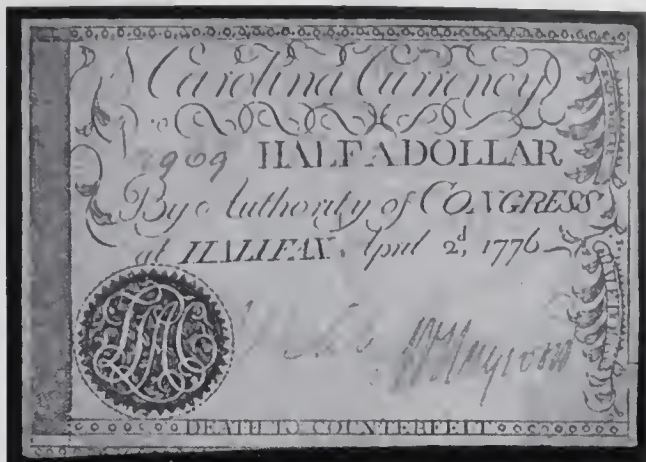 N Carolina Currency
N 2909 HALF A DOLLAR
By Authority of CONGRESS
at HALIFAX. April 2d, 1776
DEATH TO COUNTERFEIT